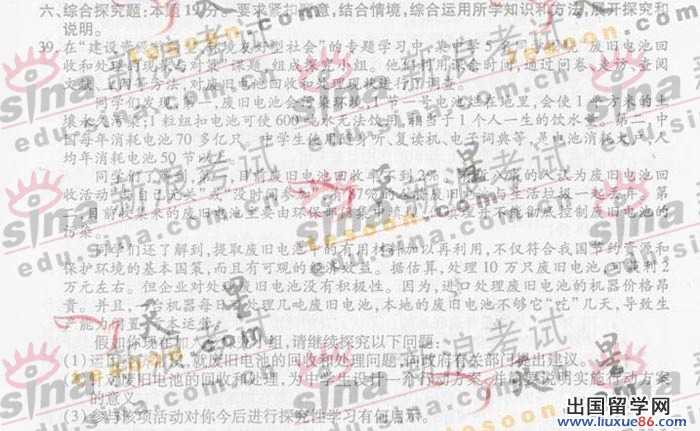 六、综合探究题:本题1 分。要求紧扣题意,结合情境,综合运用所学知识和方法,展开探究和
说明。
39.在“建设资 环境友好型社会”的专题学习中,某中学5名同 废旧电池回
收和处理的现状与对策”课题,组成探究小组。他们利用课余时间,通过问卷、走访、查阅
文献、上网等方法,对废旧电池回收和处理现状进行了调查。
同学们发现,第一,废旧电池会污染环境。一节一号电池 在地里,会使1平方米的土
壤永久 ;1粒钮扣电池可使600 水无法饮用,相当于1个人一生的饮水量。第二,中
国每年消耗电池70多亿只。中学生使用随身听、复读机、电子词典等,是电池消耗大户,人
均年消耗电池50节以上。
同学们了解到,第一,目前废旧电池回收率不到2% 的人认为废旧电池回
收活动“与自己无关”或“没时间参加” 7% 将废旧电池与生活垃圾一起 第
二,目前收集来的废旧电池主要由环保部门 填 填埋并不能彻底控制废旧电池的
污染。
同学们还了解到,提取废旧电池中的有用材料加以再利用,不仅符合我国节约资源和
保护环境的基本国策,而且有可观的经济效益。据估算,处理10万只废旧电池,可获利2
万元左右。但企业对处 电池没有积极性。因为,进口处理废旧电池的机器价格昂
贵。并且, 机器每日可处理几吨废旧电池,本地的废旧电池不够它“吃”几天,导致生
产能力闲置, 本运营。
假如你现在加 小组,请继续探究以下问题:
(1)运 就废旧电池的回收和处理问题,向政府有关部门提出建议。
(2)针对废旧电池的回收和处理,为中学生设计一个行动方案,并简要说明实施行动方案
的意义。
(3)参与该项活动对你今后进行探究性学习有何启示。
sina 新浪考试
edu.sina.com.cn
天星
tesoon.com
出国留学网
www.liuxue86.com